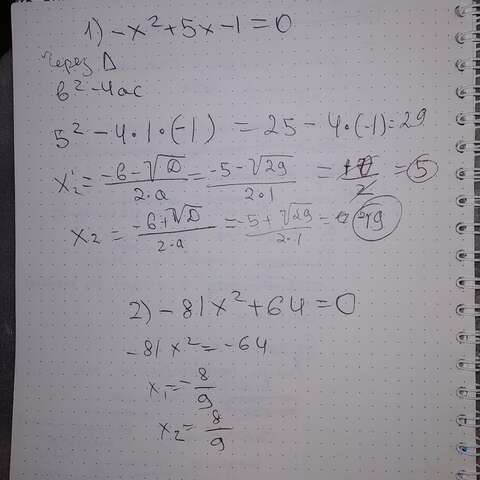 1) -x²+5x-1=0
Через Δ
b²-4ac
5²-4·1·(-1) = 25-4·(-1)=29
x₁ = (-b-√D)/(2·a) = (-5-√29)/(2·1) = = 5
x₂ = (-b+√D)/(2·a) = (-5+√29)/(2·1) =
2) -81x²+64=0
-81x²=-64
x₁=-8/9
x₂=8/9